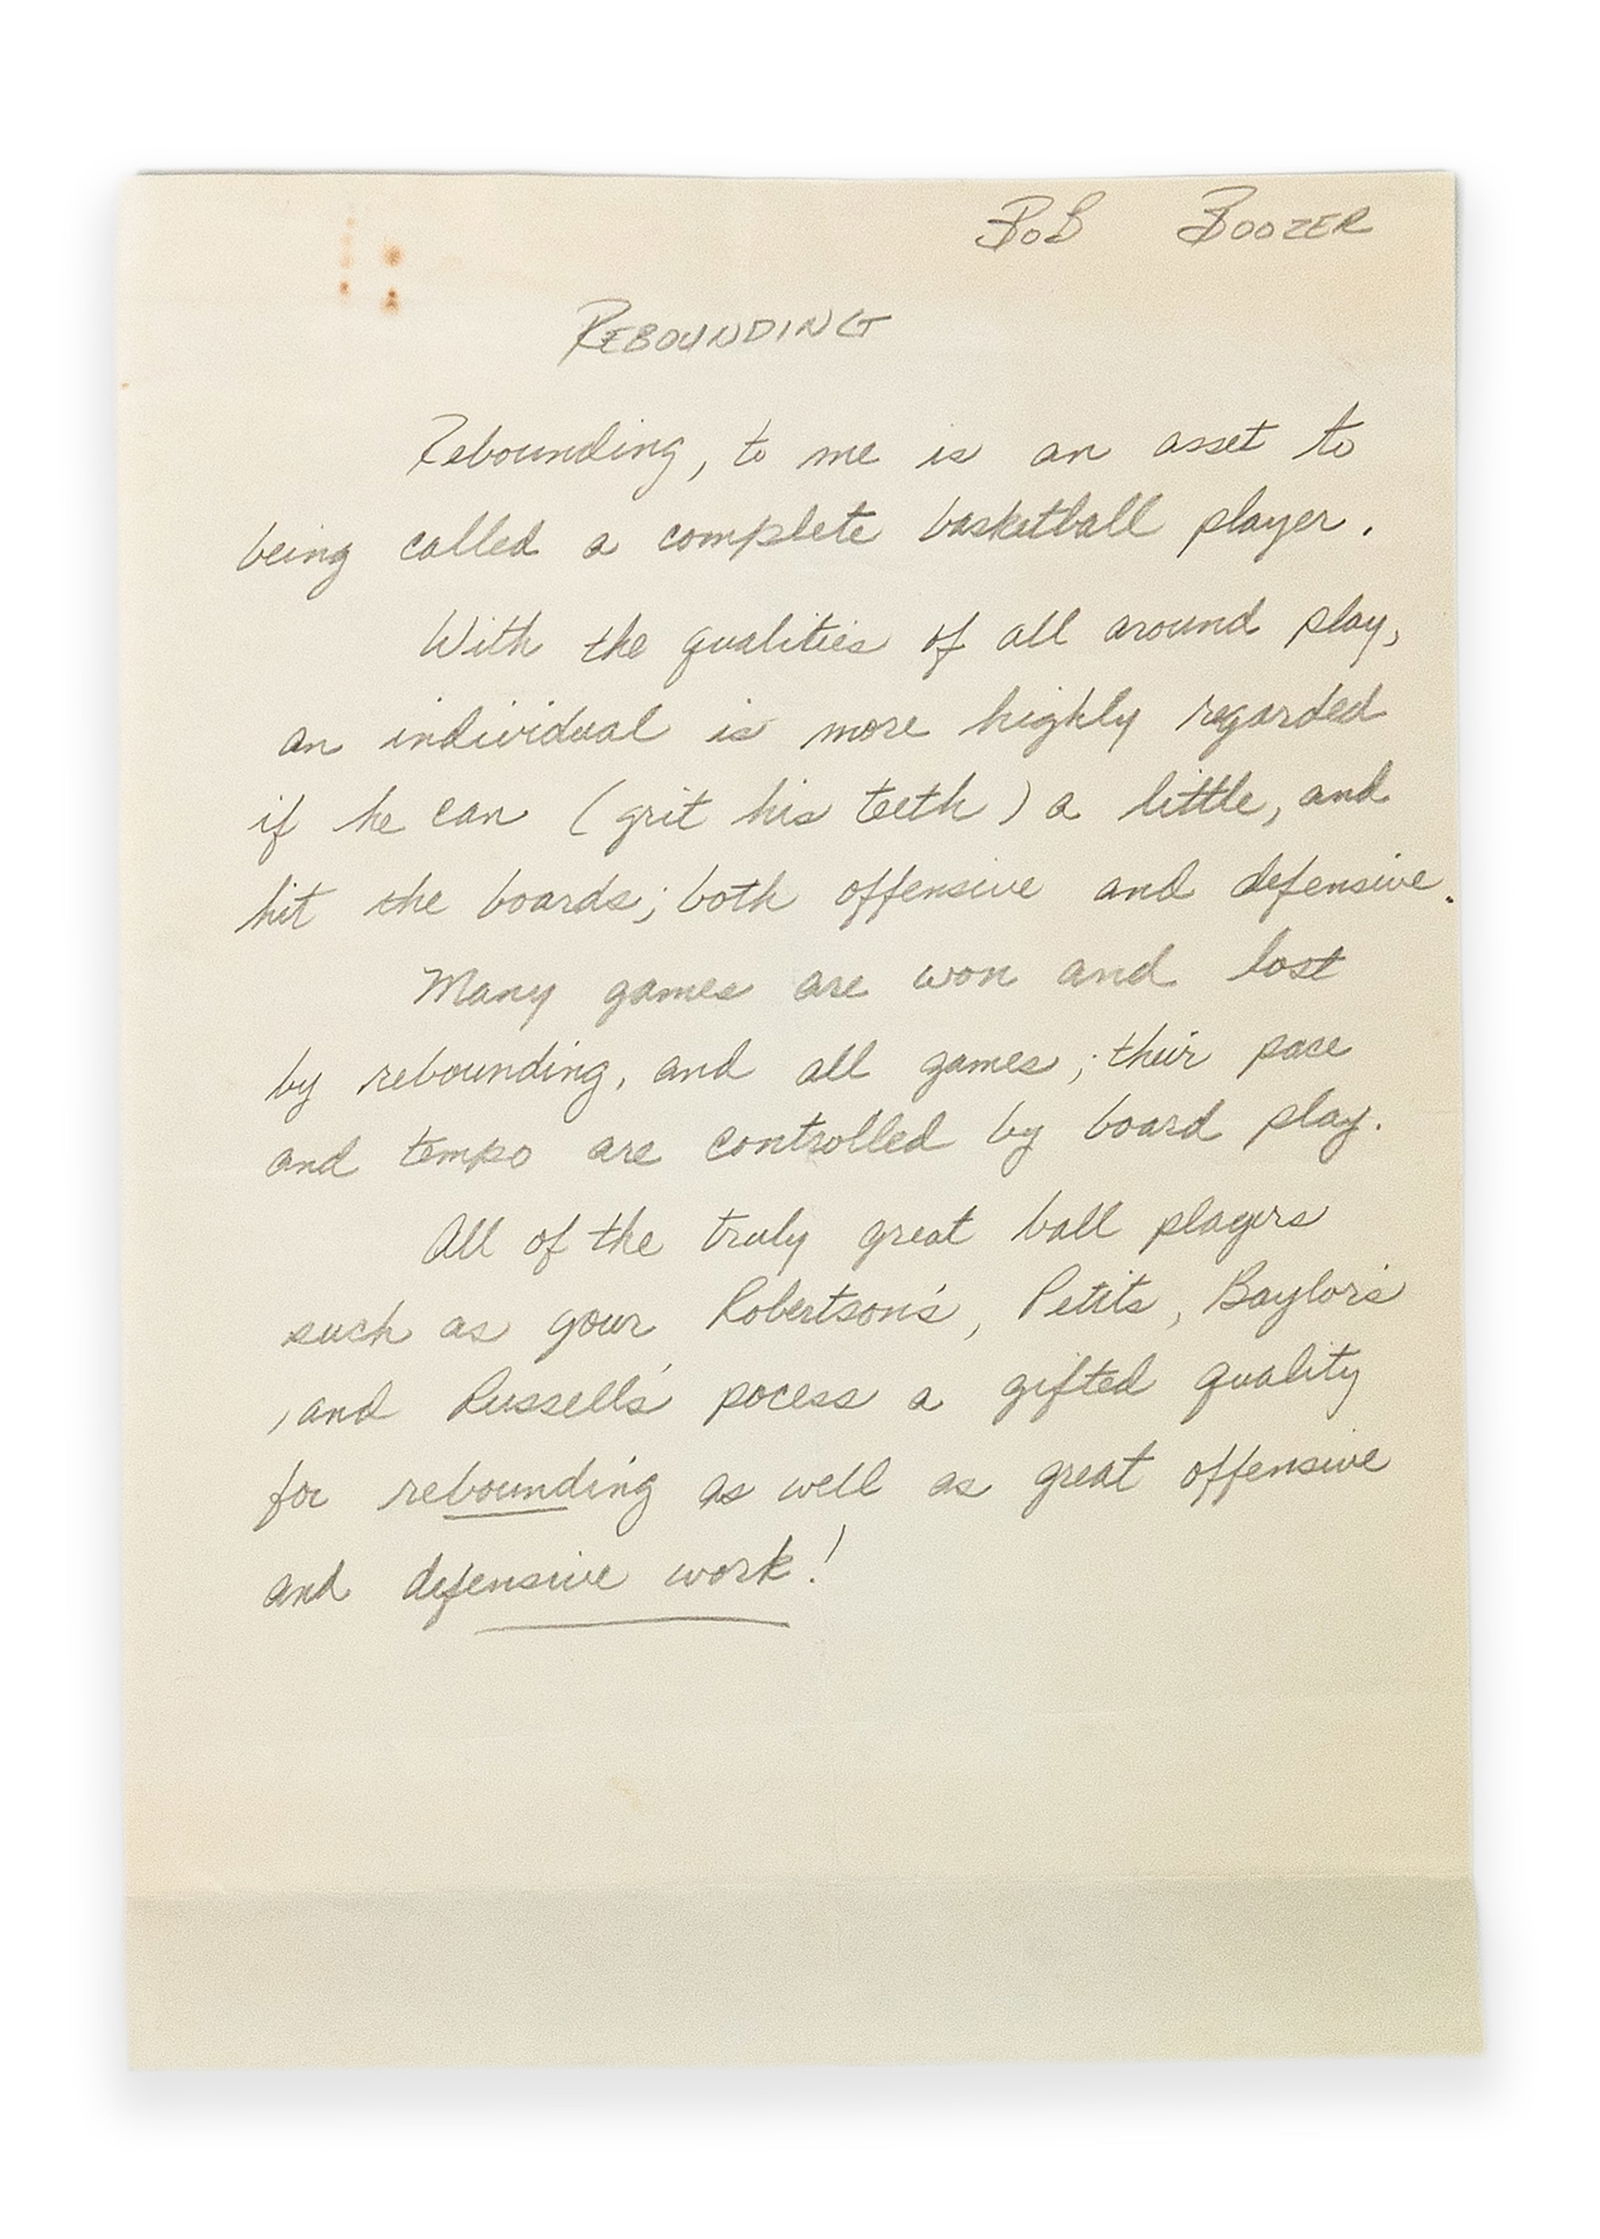 Bob Boozer
Rebounding
Rebounding, to me is an asset to
being called a complete basketball player.
With the qualities of all around play,
an individual is more highly regarded
if he can (grit his teeth) a little, and
hit the boards; both offensive and defensive.
Many games are won and lost
by rebounding, and all games; their pace
and tempo are controlled by board play.
All of the truly great ball players
such as your Robertson's, Petits, Baylor's
, and Russell's pocess a gifted quality
for rebounding as well as great offensive
and defensive work!